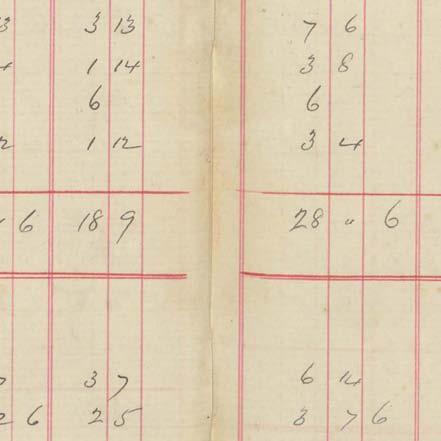 3 13 7 6
1 14 3 8
6 6
1 12 3 4
6 18 9 28 " 6
3 7 6 14
6 2 5 3 7 6